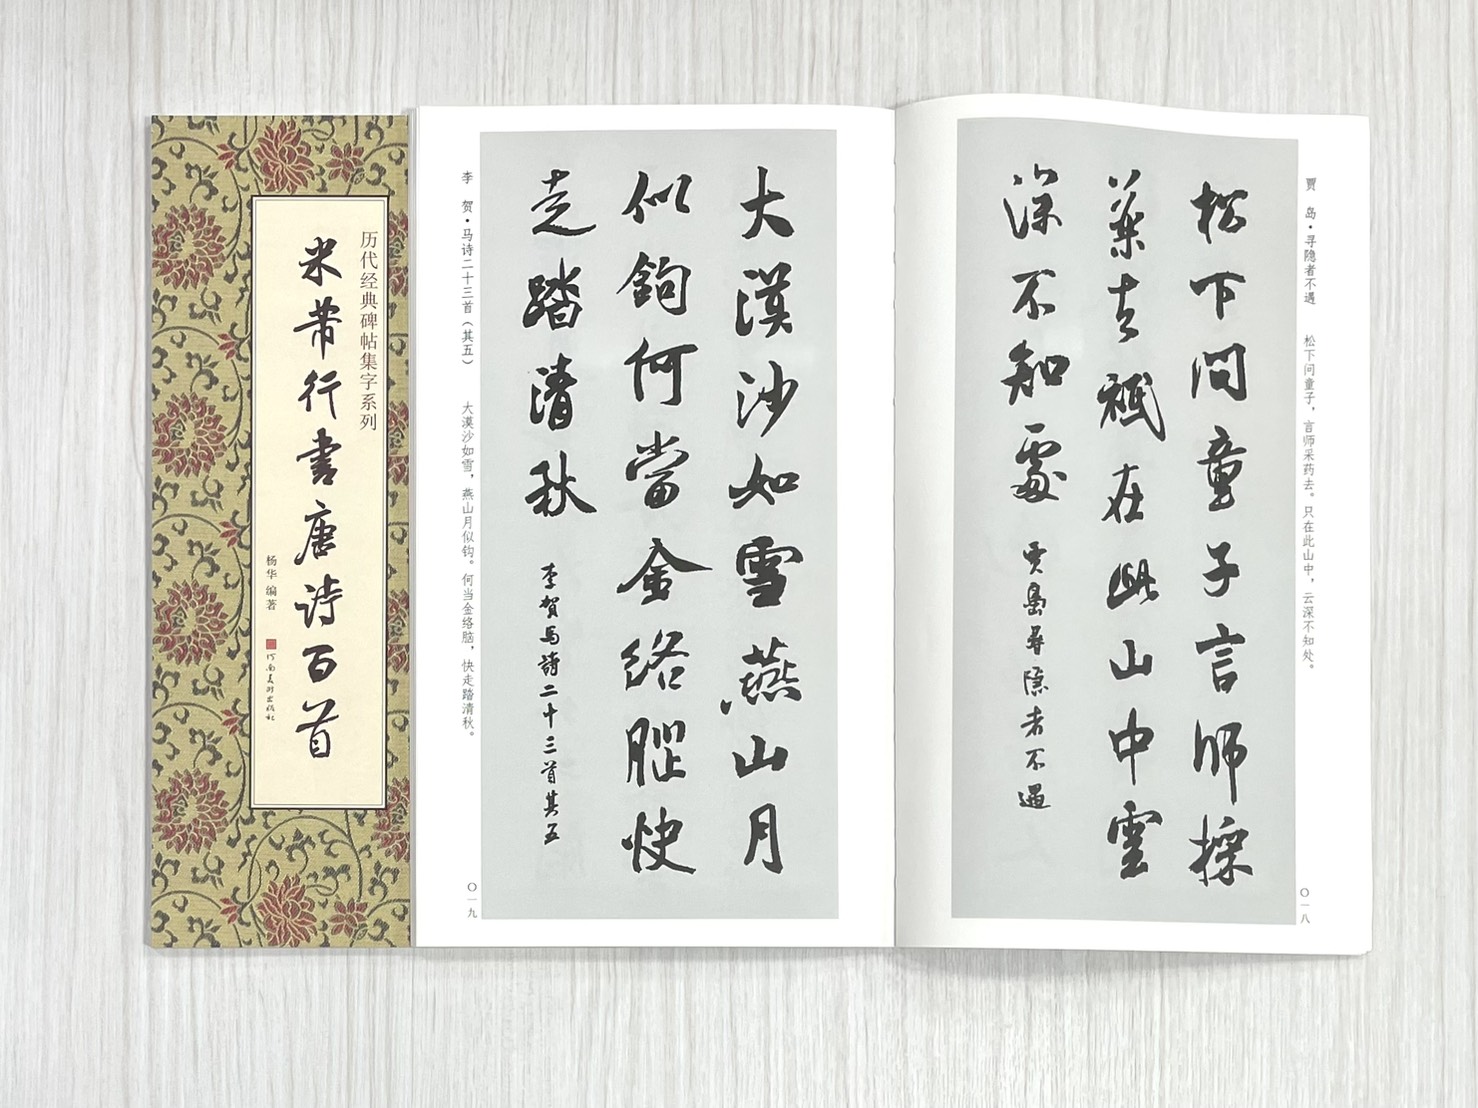 历代经典碑帖集字系列
米芾行書唐诗百首
杨华 编著
河南美术出版社
贾 岛·寻隐者不遇 松下问童子，言师采药去。只在此山中，云深不知处。
〇一八
松下問童子言師採
藥去祇在此山中雲
深不知處 賈島尋隱者不遇
大漠沙如雪燕山月
似鉤何當金絡腦快
走踏清秋 李賀馬詩二十三首其五
李 贺·马诗二十三首（其五） 大漠沙如雪，燕山月似钩。何当金络脑，快走踏清秋。
〇一九